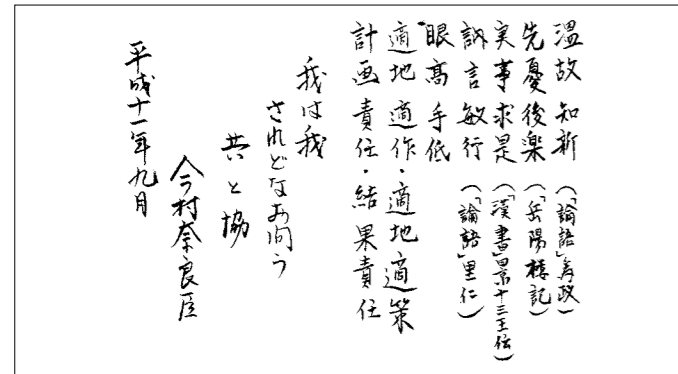 温故知新(「論語」為政)
先憂後楽(「岳陽楼記」)
実事求是(「漢書」景十三王伝)
訥言敏行(「論語」里仁)
眼高手低
適地適作・適地適策
計画責任・結果責任
我は我
されどなお問う
共と協
今村奈良臣
平成十一年九月